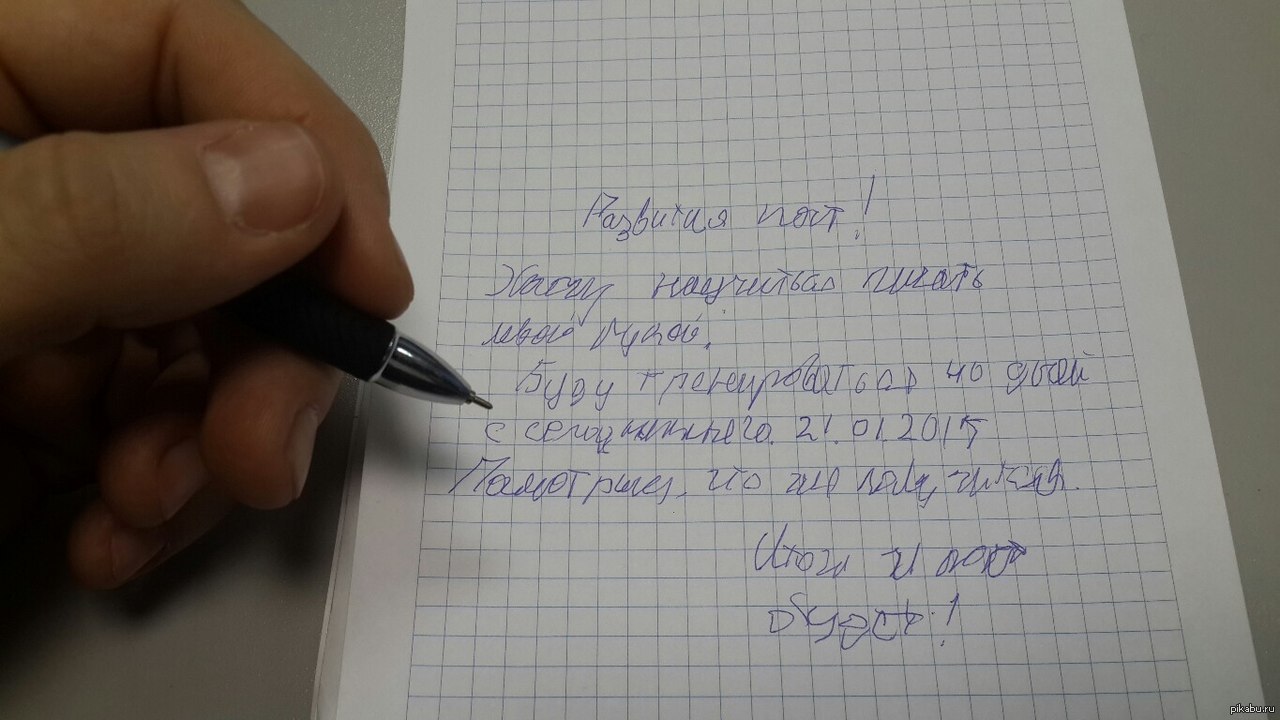 Развития пост!
Хочу научиться писать
левой рукой.
Буду тренироваться 40 дней
с сегодняшнего. 21.01.2015
Посмотрим, что же получится.
Итоги и пост
будет!
pikabu.ru